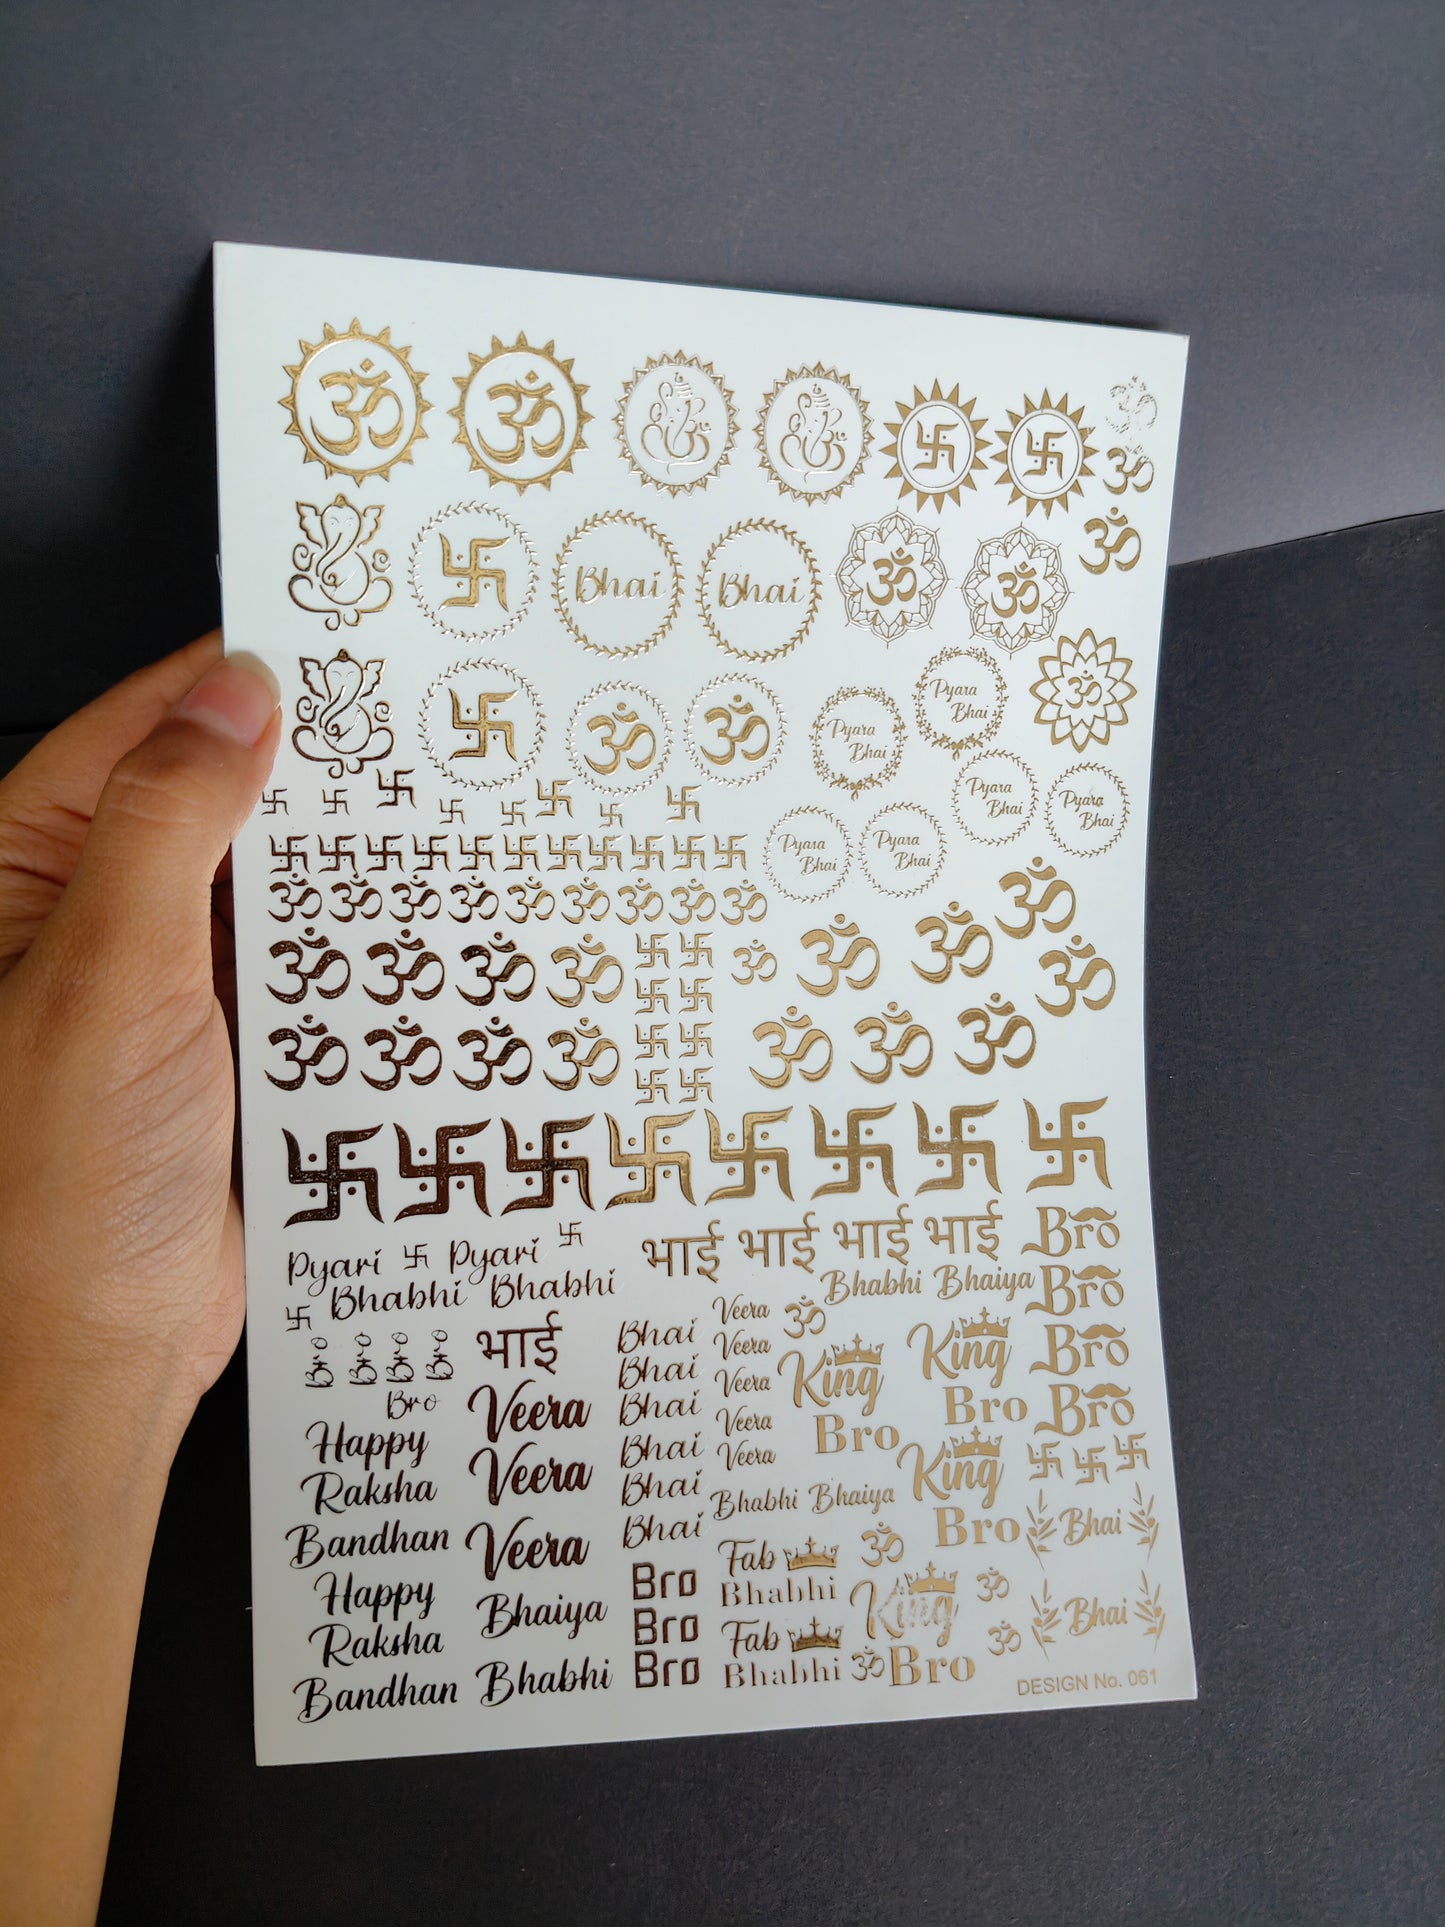 ॐ ॐ ॐ
ॐ
Bhai Bhai ॐ ॐ ॐ
ॐ ॐ Pyara Bhai Pyara Bhai ॐ
Pyara Bhai Pyara Bhai Pyara Bhai Pyara Bhai
ॐ ॐ ॐ ॐ ॐ ॐ ॐ ॐ ॐ
ॐ ॐ ॐ ॐ ॐ ॐ ॐ ॐ ॐ
ॐ ॐ ॐ ॐ ॐ ॐ ॐ
भाई भाई भाई भाई Bro
Pyari Pyari
Bhabhi Bhabhi
Bhabhi Bhaiya Bro
Bro Bro Bro Bro
Bro
भाई
Bhai
Bhai
Bhai
Bhai
Bhai
Bhai
Veera ॐ
Veera
Veera
Veera
Veera
King
Bro
King
Bro
Bro
Bro
King
Bro
Happy
Raksha
Bandhan
Happy
Raksha
Bandhan
Veera
Veera
Veera
Bhaiya
Bhabhi
Bro
Bro
Bro
Bhabhi Bhaiya
Fab
Bhabhi
Fab
Bhabhi
ॐ
King
Bro
ॐ
ॐ
ॐ
Bhai
Bhai
DESIGN No. 061